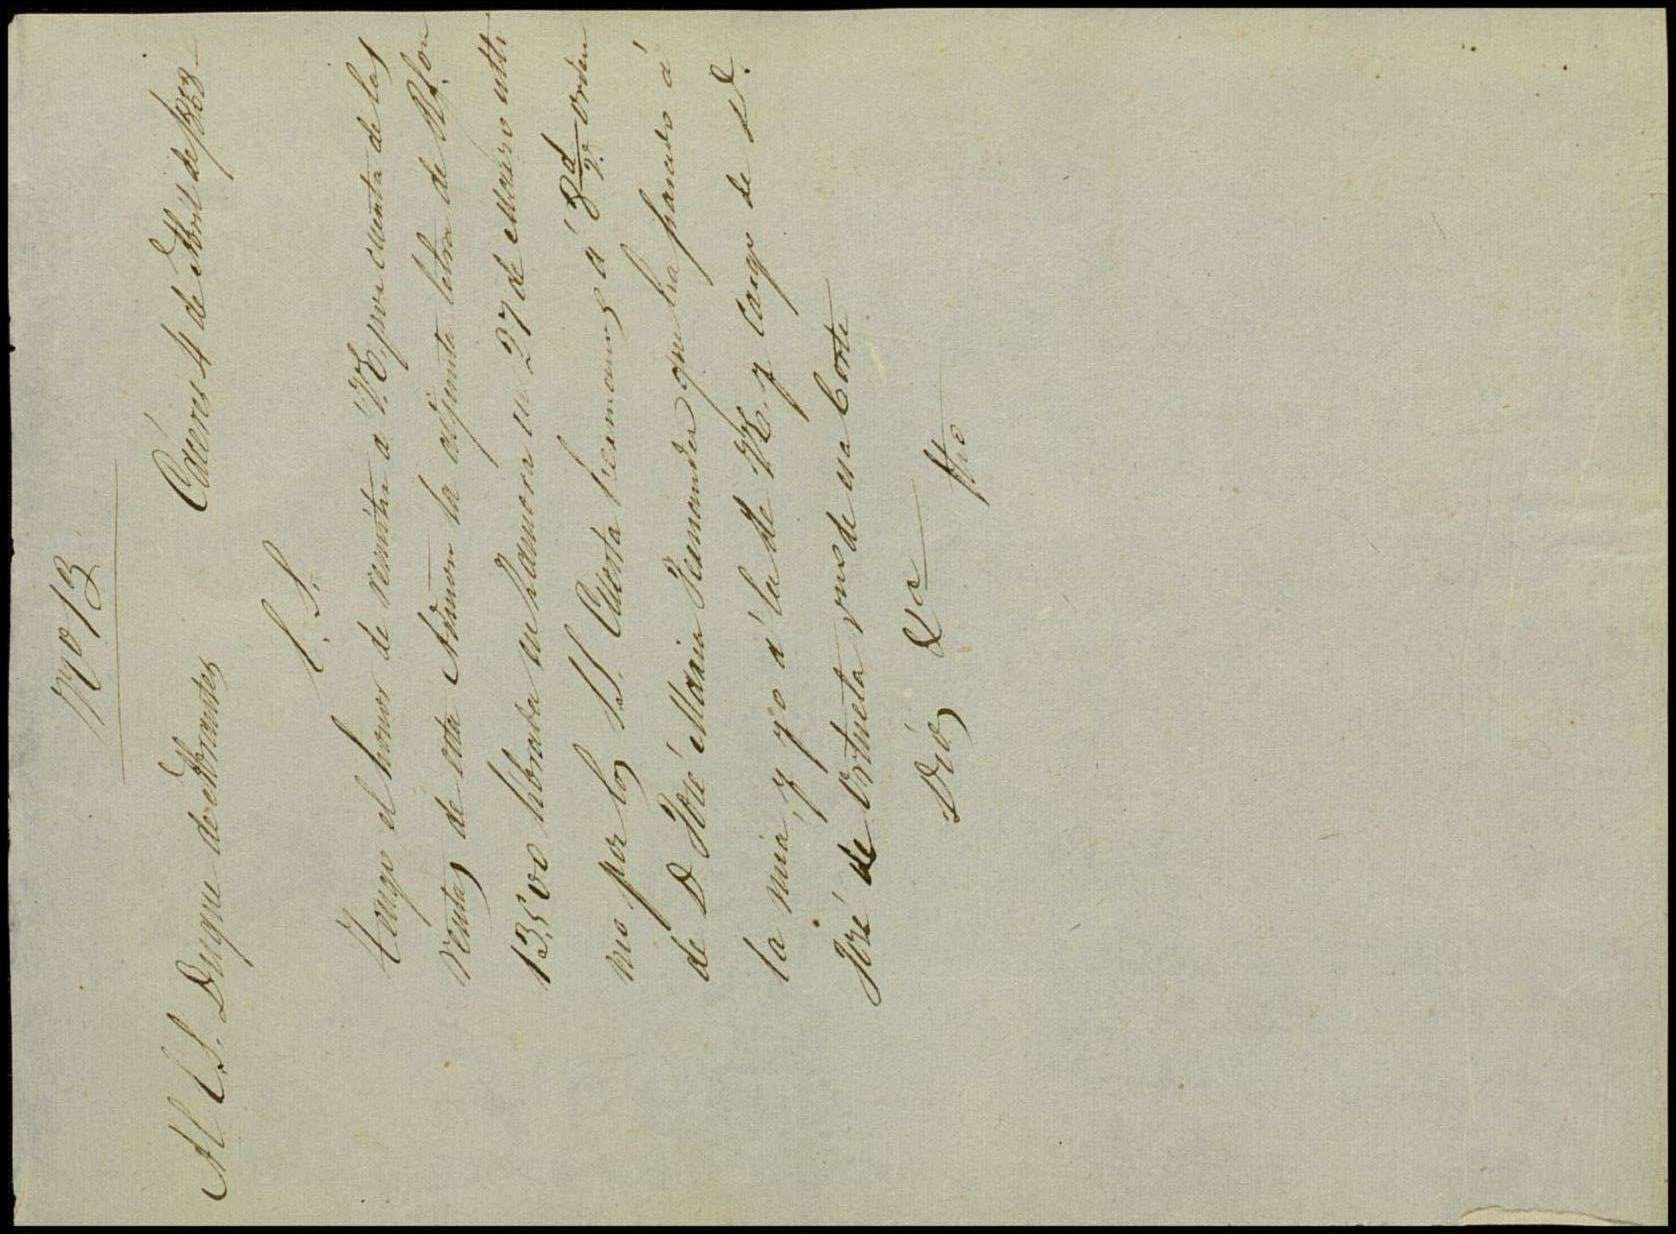 Nº 13
Al E.S. Duque de Abrantes Cáceres 4 de Abril de 1868
E. S.
Tengo el honor de remitir á V.E. por cuenta de las
rentas de esta Admon la adjunta letra de Rs. on
13,500 librada en Zamora en 27 de Marzo últi
mo por los SS. Cuesta hermanos á 8 d/v. orden
de D José Maria Fernandez que ha pasado á
la mia, y yo á la de V.E. y cargo de D.
José de Ortueta de esa Corte
Dios &a
Fho